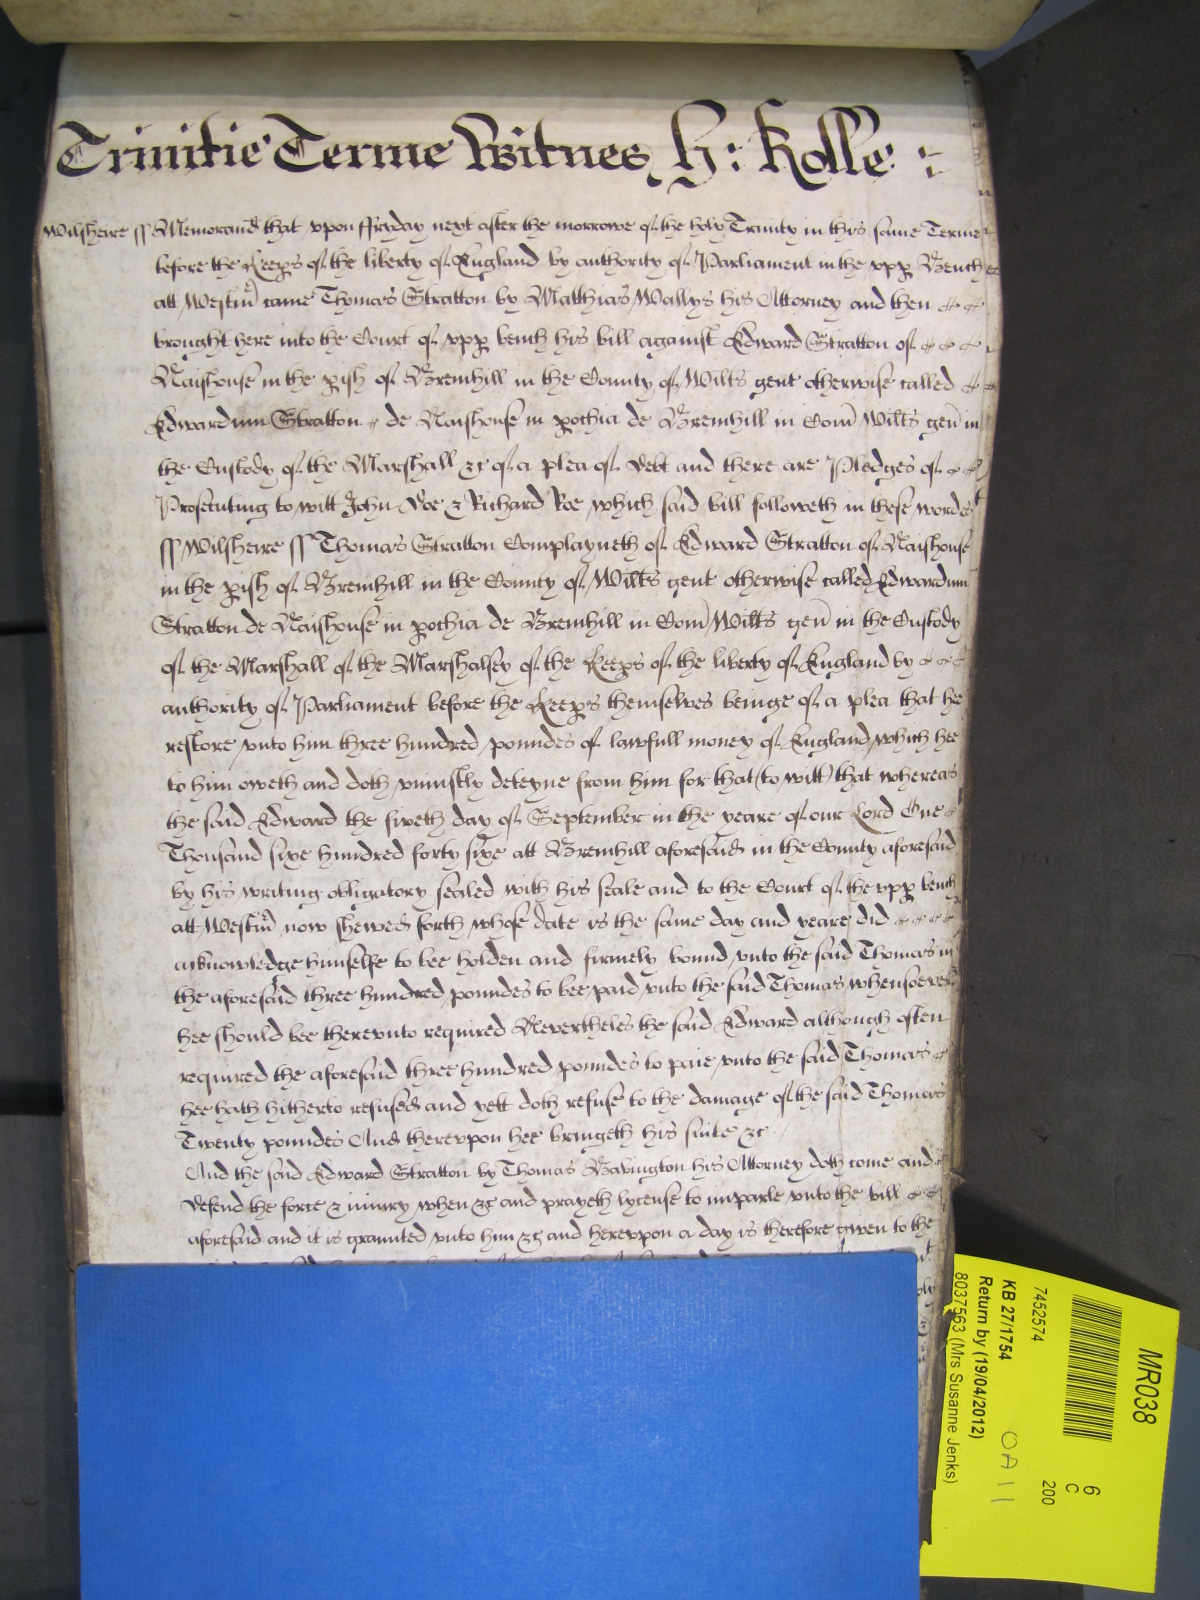 Trinitie Terme Witnes H: Rolle :
Wilsheire ss Memorand that vpon ffryday next after the morrowe of the holy Trinity in this same Terme
before the Keeps of the liberty of England by authority of Parliament in the vpp Bench
att Westm came Thomas Stratton by Matthias Wallys his Attorney and then
brought here into the Court of vpp bench his bill against Edward Stratton of
Naishouse in the pish of Bremhill in the County of Wilts gent otherwise called
Edwardum Stratton de Naishouse in pochia de Bremhill in Com Wilts gen in
the Custody of the Marshall &c of a plea of debt and there are Pledges of
Prosecuting to witt John Doe & Richard Roe which said bill followeth in these wordes
ss Wilsheire ss Thomas Stratton Complayneth of Edward Stratton of Naishouse
in the pish of Bremhill in the County of Wilts gent otherwise called Edwardum
Stratton de Naishouse in pochia de Bremhill in Com Wilts gen in the Custody
of the Marshall of the Marshalsey of the Keeps of the liberty of England by
authority of Parliament before the Keeps themselves beinge of a plea that hee
restore vnto him three hundred poundes of lawfull money of England which hee
to him oweth and doth vniustly deteyne from him for that (to witt) that whereas
the said Edward the sixeth day of September in the yeare of our Lord One
Thousand sixe hundred forty sixe att Bremhill aforesaid in the County aforesaid
by his writing obligatory sealed with his seale and to the Court of the vpp bench
att Westm now shewed forth whose date is the same day and yeare did
acknowledge himselfe to bee holden and firmely bound vnto the said Thomas in
the aforesaid three hundred poundes to bee paid vnto the said Thomas whensoever
hee should bee therevnto required Nevertheles the said Edward although often
required the aforesaid three hundred poundes to paie vnto the said Thomas
hee hath hitherto refused and yett doth refuse to the damage of the said Thomas
Twenty poundes And therevpon hee bringeth his suite &c
And the said Edward Stratton by Thomas Bavington his Attorney doth come and
defend the force & iniury when &c and prayeth lycense to imparle vnto the bill
aforesaid and it is graunted vnto him &c and herevpon a day is therefore given to the
MR038
7452574
KB 27/1754
Return by (19/04/2012)
8037563 (Mrs Susanne Jenks)
6
C
200
OA 11